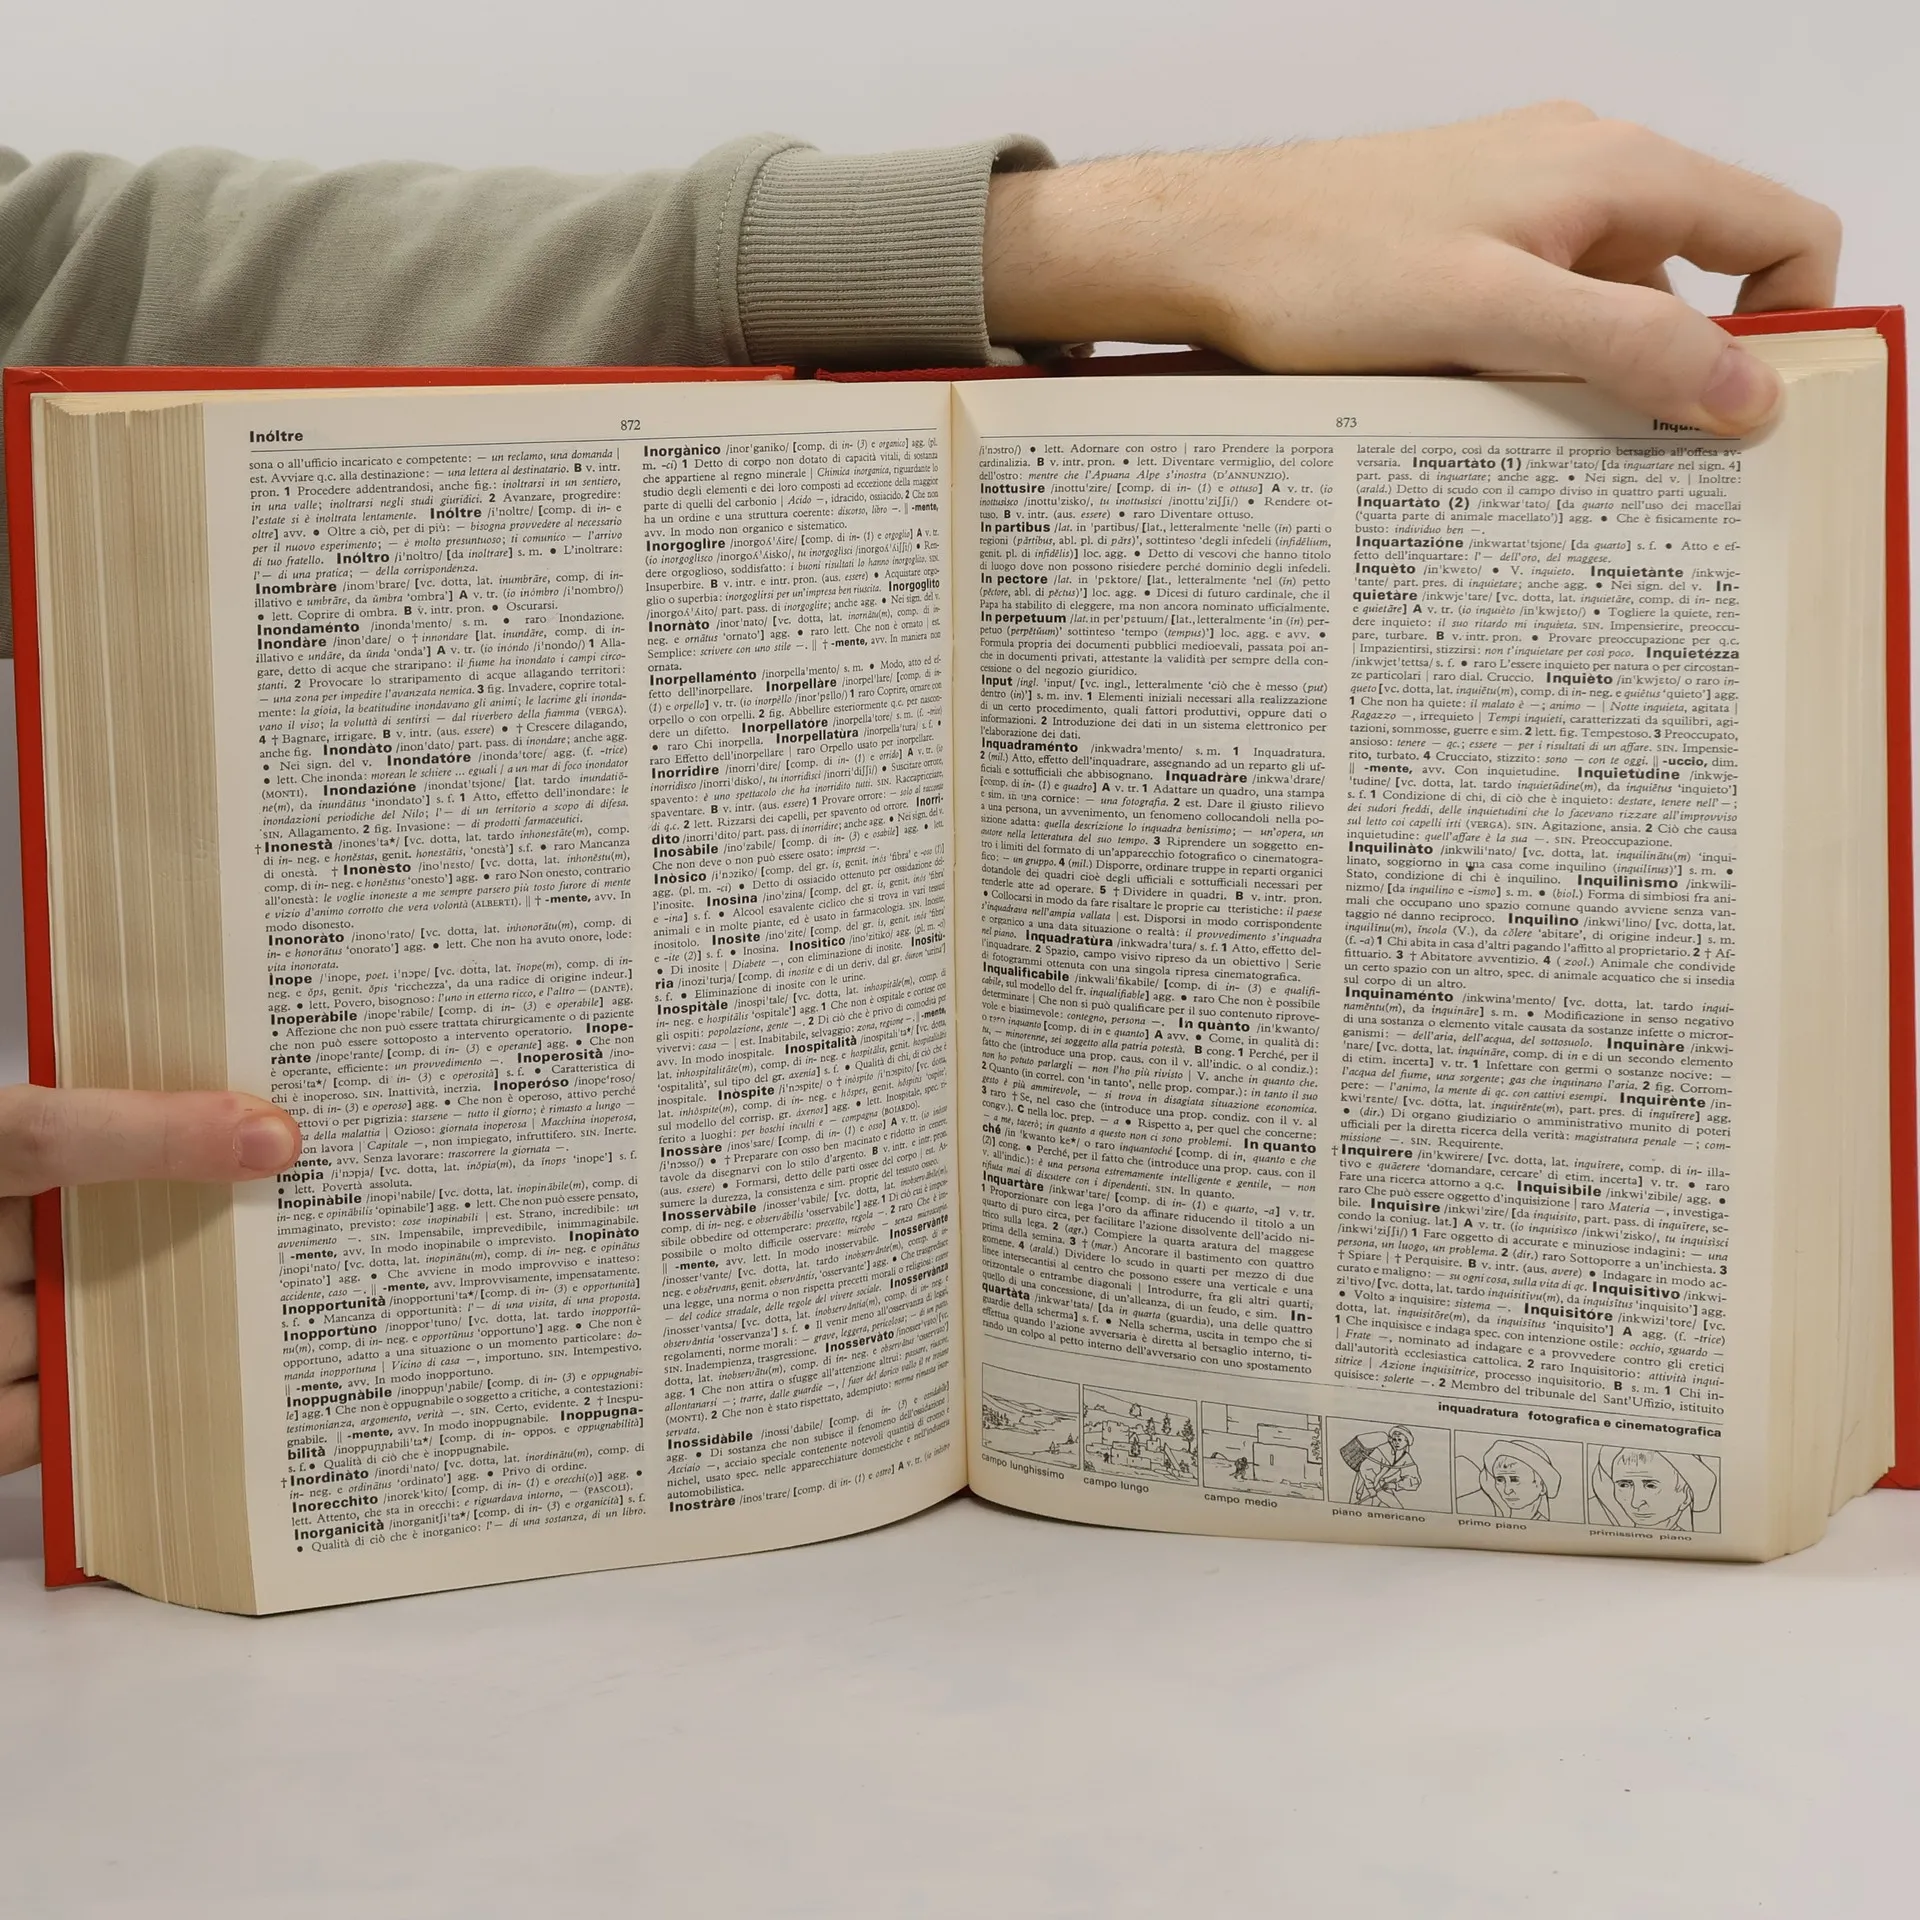 Inóltre
872
sona o all'ufficio incaricato e competente: — un reclamo, una domanda |
est. Avviare q.c. alla destinazione: — una lettera al destinatario. B v. intr.
pron. 1 Procedere addentrandosi, anche fig.: inoltrarsi in un sentiero,
in una valle; inoltrarsi negli studi giuridici. 2 Avanzare, progredire:
l'estate si è inoltrata lentamente. Inóltre /i'noltre/ [comp. di in- e
oltre] avv. ● Oltre a ciò, per di più: — bisogna provvedere al necessario
per il nuovo esperimento; — è molto presuntuoso; ti comunico — l'arrivo
di tuo fratello. Inóltro /i'noltro/ [da inoltrare] s. m. ● L'inoltrare:
l'— di una pratica; — della corrispondenza.
Inombràre /inom'brare/ [vc. dotta, lat. inumbrāre, comp. di in-
illativo e umbrāre, da ŭmbra 'ombra'] A v. tr. (io inómbro /i'nombro/)
● lett. Coprire di ombra. B v. intr. pron. ● Oscurarsi.
Inondaménto /inonda'mento/ s. m. ● raro Inondazione.
Inondàre /inon'dare/ o † innondare [lat. inundāre, comp. di in-
illativo e undāre, da ŭnda 'onda'] A v. tr. (io inóndo /i'nondo/) 1 Alla-
gare, detto di acque che straripano: il fiume ha inondato i campi circo-
stanti. 2 Provocare lo straripamento di acque allagando territori:
— una zona per impedire l'avanzata nemica. 3 fig. Invadere, coprire total-
mente: la gioia, la beatitudine inondavano gli animi; le lacrime gli inonda-
vano il viso; la voluttà di sentirsi — dal riverbero della fiamma (VERGA).
4 † Bagnare, irrigare. B v. intr. (aus. essere) ● † Crescere dilagando,
anche fig. Inondàto /inon'dato/ part. pass. di inondare; anche agg.
● Nei sign. del v. Inondatóre /inonda'tore/ agg. (f. -trice)
● lett. Che inonda: morean le schiere ... eguali / a un mar di foco inondator
(MONTI). Inondazióne /inondat'tsjone/ [lat. tardo inundatiō-
ne(m), da inundātus 'inondato'] s. f. 1 Atto, effetto dell'inondare: le
inondazioni periodiche del Nilo; l'— di un territorio a scopo di difesa.
SIN. Allagamento. 2 fig. Invasione: — di prodotti farmaceutici.
† Inonestà /inones'ta*/ [vc. dotta, lat. tardo inhonestāte(m), comp.
di in- neg. e honĕstas, genit. honestātis, 'onestà'] s.f. ● raro Mancanza
di onestà. † Inonèsto /ino'nɛsto/ [vc. dotta, lat. inhonĕstu(m),
comp. di in- neg. e honĕstus 'onesto'] agg. ● raro Non onesto, contrario
all'onestà: le voglie inoneste a me sempre parsero più tosto furore di mente
e vizio d'animo corrotto che vera volontà (ALBERTI). || † -mente, avv. In
modo disonesto.
Inonoràto /inono'rato/ [vc. dotta, lat. inhonorātu(m), comp. di
in- e honorātus 'onorato'] agg. ● lett. Che non ha avuto onore, lode:
vita inonorata.
Ìnope /'inope, poet. i'nɔpe/ [vc. dotta, lat. ĭnope(m), comp. di in-
neg. e ŏps, genit. ŏpis 'ricchezza', da una radice di origine indeur.]
agg. ● lett. Povero, bisognoso: l'uno in etterno ricco, e l'altro — (DANTE).
Inoperàbile /inope'rabile/ [comp. di in- (3) e operabile] agg.
● Affezione che non può essere trattata chirurgicamente o di paziente
che non può essere sottoposto a intervento operatorio. Inope-
rànte /inope'rante/ [comp. di in- (3) e operante] agg. ● Che non
è operante, efficiente: un provvedimento —. Inoperosità /ino-
perosi'ta*/ [comp. di in- (3) e operosità] s. f. ● Caratteristica di
chi è inoperoso. SIN. Inattività, inerzia. Inoperóso /inope'roso/
omp. di in- (3) e operoso] agg. ● Che non è operoso, attivo perché
ettovi o per pigrizia: starsene — tutto il giorno; è rimasto a lungo —
sa della malattia | Ozioso: giornata inoperosa | Macchina inoperosa,
on lavora | Capitale —, non impiegato, infruttifero. SIN. Inerte.
mente, avv. Senza lavorare: trascorrere la giornata —.
Inòpia /i'nɔpja/ [vc. dotta, lat. inŏpia(m), da ĭnops 'inope'] s. f.
● lett. Povertà assoluta.
Inopinàbile /inopi'nabile/ [vc. dotta, lat. inopinābile(m), comp. di
in- neg. e opinābilis 'opinabile'] agg. ● lett. Che non può essere pensato,
immaginato, previsto: cose inopinabili | est. Strano, incredibile: un
avvenimento —. SIN. Impensabile, imprevedibile, inimmaginabile.
|| -mente, avv. In modo inopinabile o imprevisto. Inopinàto
/inopi'nato/ [vc. dotta, lat. inopinātu(m), comp. di in- neg. e opinātus
'opinato'] agg. ● Che avviene in modo improvviso e inatteso:
accidente, caso —. || -mente, avv. Improvvisamente, impensatamente.
Inopportunità /inopportuni'ta*/ [comp. di in- (3) e opportunità]
s. f. ● Mancanza di opportunità: l'— di una visita, di una proposta.
Inopportùno /inoppor'tuno/ [vc. dotta, lat. tardo inopportū-
nu(m), comp. di in- neg. e opportūnus 'opportuno'] agg. ● Che non è
opportuno, adatto a una situazione o un momento particolare: do-
manda inopportuna | Vicino di casa —, importuno. SIN. Intempestivo.
|| -mente, avv. In modo inopportuno.
Inoppugnàbile /inoppuɲ'ɲabile/ [comp. di in- (3) e oppugnabi-
le] agg. 1 Che non è oppugnabile o soggetto a critiche, a contestazioni:
testimonianza, argomento, verità —. SIN. Certo, evidente. 2 † Inespu-
gnabile. || -mente, avv. In modo inoppugnabile. Inoppugna-
bilità /inoppuɲɲabili'ta*/ [comp. di in- oppos. e oppugnabilità]
s. f. ● Qualità di ciò che è inoppugnabile.
† Inordinàto /inordi'nato/ [vc. dotta, lat. inordinātu(m), comp. di
in- neg. e ordinātus 'ordinato'] agg. ● Privo di ordine.
Inorecchìto /inorek'kito/ [comp. di in- (1) e orecchi(o)] agg. ●
lett. Attento, che sta in orecchi: e riguardava intorno, — (PASCOLI).
Inorganicità /inorganitʃi'ta*/ [comp. di in- (3) e organicità] s. f.
● Qualità di ciò che è inorganico: l'— di una sostanza, di un libro.
Inorgànico /inor'ganiko/ [comp. di in- (3) e organico] agg. (pl.
m. -ci) 1 Detto di corpo non dotato di capacità vitali, di sostanza
che appartiene al regno minerale | Chimica inorganica, riguardante lo
studio degli elementi e dei loro composti ad eccezione della maggior
parte di quelli del carbonio | Acido —, idracido, ossiacido. 2 Che non
ha un ordine e una struttura coerente: discorso, libro —. || -mente,
avv. In modo non organico e sistematico.
Inorgoglìre /inorgoʎ'ʎire/ [comp. di in- (1) e orgoglio] A v. tr.
(io inorgoglisco /inorgoʎ'ʎisko/, tu inorgoglisci /inorgoʎ'ʎiʃʃi/) ● Ren-
dere orgoglioso, soddisfatto: i buoni risultati lo hanno inorgoglito. SIN.
Insuperbire. B v. intr. e intr. pron. (aus. essere) ● Acquistare orgo-
glio o superbia: inorgoglirsi per un'impresa ben riuscita. Inorgoglìto
/inorgoʎ'ʎito/ part. pass. di inorgoglire; anche agg. ● Nei sign. del v.
Inornàto /inor'nato/ [vc. dotta, lat. inornātu(m), comp. di in-
neg. e ornātus 'ornato'] agg. ● raro lett. Che non è ornato | est.
Semplice: scrivere con uno stile —. || † -mente, avv. In maniera non
ornata.
Inorpellaménto /inorpella'mento/ s. m. ● Modo, atto ed ef-
fetto dell'inorpellare. Inorpellàre /inorpel'lare/ [comp. di in-
(1) e orpello] v. tr. (io inorpèllo /inor'pɛllo/) 1 raro Coprire, ornare con
orpello o con orpelli. 2 fig. Abbellire esteriormente q.c. per nascon-
dere un difetto. Inorpellatóre /inorpella'tore/ s. m. (f. -trice)
● raro Chi inorpella. Inorpellatùra /inorpella'tura/ s. f. ●
raro Effetto dell'inorpellare | raro Orpello usato per inorpellare.
Inorridìre /inorri'dire/ [comp. di in- (1) e orrido] A v. tr. (io
inorridisco /inorri'disko/, tu inorridisci /inorri'diʃʃi/) ● Suscitare orrore,
spavento: è uno spettacolo che ha inorridito tutti. SIN. Raccapricciare,
spaventare. B v. intr. (aus. essere) 1 Provare orrore: — solo al racconto
di q.c. 2 lett. Rizzarsi dei capelli, per spavento od orrore. Inorri-
dìto /inorri'dito/ part. pass. di inorridire; anche agg. ● Nei sign. del v.
Inosàbile /ino'zabile/ [comp. di in- (3) e osabile] agg. ● lett.
Che non deve o non può essere osato: impresa —.
Inòsico /i'nɔziko/ [comp. del gr. ís, genit. inós 'fibra' e -oso (1)]
agg. (pl. m. -ci) ● Detto di ossiacido ottenuto per ossidazione del-
l'inosite. Inosìna /ino'zina/ [comp. del gr. ís, genit. inós 'fibra'
e -ina] s. f. ● Alcool esavalente ciclico che si trova in vari tessuti
animali e in molte piante, ed è usato in farmacologia. SIN. Inosite,
inositolo. Inosìte /ino'zite/ [comp. del gr. ís, genit. inós 'fibra'
e -ite (2)] s. f. ● Inosina. Inosìtico /ino'zitiko/ agg. (pl. m. -ci)
● Di inosite | Diabete —, con eliminazione di inosite. Inositù-
ria /inozi'turja/ [comp. di inosite e di un deriv. dal gr. ôuron 'urina']
s. f. ● Eliminazione di inosite con le urine.
Inospitàle /inospi'tale/ [vc. dotta, lat. inhospitāle(m), comp. di
in- neg. e hospitālis 'ospitale'] agg. 1 Che non è ospitale e cortese con
gli ospiti: popolazione, gente —. 2 Di ciò che è privo di comodità per
vivervi: casa — | est. Inabitabile, selvaggio: zona, regione —. || -mente,
avv. In modo inospitale. Inospitalità /inospitali'ta*/ [vc. dotta,
lat. inhospitalitāte(m), comp. di in- neg. e hospitālis, genit. hospitalitātis
'ospitalità', sul tipo del gr. axenía] s. f. ● Qualità di chi, di ciò che è
inospitale. Inòspite /i'nɔspite/ o † inòspito /i'nɔspito/ [vc. dotta,
lat. inhŏspite(m), comp. di in- neg. e hŏspes, genit. hŏspitis 'ospite',
sul modello del corrisp. gr. áxenos] agg. ● lett. Inospitale, spec. ri-
ferito a luoghi: per boschi inculti e — compagna (BOIARDO).
Inossàre /inos'sare/ [comp. di in- (1) e osso] A v. tr. (io inòsso
/i'nɔsso/) ● † Preparare con osso ben macinato e ridotto in cenere,
tavole da disegnarvi con lo stilo d'argento. B v. intr. e intr. pron.
(aus. essere) ● Formarsi, detto delle parti ossee del corpo | est. As-
sumere la durezza, la consistenza e sim. proprie del tessuto osseo.
Inosservàbile /inosser'vabile/ [vc. dotta, lat. inobservābile(m),
comp. di in- neg. e observābilis 'osservabile'] agg. 1 Di ciò cui è impos-
sibile obbedire od ottemperare: precetto, regola —. 2 raro Che è im-
possibile o molto difficile osservare: microbo — senza microscopio.
|| -mente, avv. In modo inosservabile. Inosservànte
/inosser'vante/ [vc. dotta, lat. tardo inobservănte(m), comp. di in-
neg. e obsĕrvans, genit. observăntis, 'osservante'] agg. ● Che trasgredisce
una legge, una norma o non rispetta precetti morali o religiosi: essere
— del codice stradale, delle regole del vivere sociale. Inosservànza
/inosser'vantsa/ [vc. dotta, lat. inobservăntia(m), comp. di in- neg. e
observăntia 'osservanza'] s. f. ● Il venir meno all'osservanza di leggi,
regolamenti, norme morali: — grave, leggera, pericolosa; — di un patto.
SIN. Inadempienza, trasgressione. Inosservàto /inosser'vato/ [vc.
dotta, lat. inobservātu(m), comp. di in- neg. e observātus 'osservato']
agg. 1 Che non attira o sfugge all'attenzione altrui: passare, riuscire,
allontanarsi —; trarre, dalle guardie —, / fuor del dorico vallo il re troiano
(MONTI). 2 Che non è stato rispettato, adempiuto: norma rimasta inos-
servata.
Inossidàbile /inossi'dabile/ [comp. di in- (3) e ossidabile]
agg. ● Di sostanza che non subisce il fenomeno dell'ossidazione |
Acciaio —, acciaio speciale contenente notevoli quantità di cromo e
nichel, usato spec. nelle apparecchiature domestiche e nell'industria
automobilistica.
Inostràre /inos'trare/ [comp. di in- (1) e ostro] A v. tr. (io inòstro
873
/i'nɔstro/) ● lett. Adornare con ostro | raro Prendere la porpora
cardinalizia. B v. intr. pron. ● lett. Diventare vermiglio, del colore
dell'ostro: mentre che l'Apuana Alpe s'inostra (D'ANNUNZIO).
Inottusìre /inottu'zire/ [comp. di in- (1) e ottuso] A v. tr. (io
inottusisco /inottu'zisko/, tu inottusisci /inottu'ziʃʃi/) ● Rendere ot-
tuso. B v. intr. (aus. essere) ● raro Diventare ottuso.
In partibus /lat. in 'partibus/ [lat., letteralmente 'nelle (in) parti o
regioni (pārtibus, abl. pl. di pārs)', sottinteso 'degli infedeli (infidēlium,
genit. pl. di infidēlis)] loc. agg. ● Detto di vescovi che hanno titolo
di luogo dove non possono risiedere perché dominio degli infedeli.
In pectore /lat. in 'pɛktore/ [lat., letteralmente 'nel (in) petto
(pĕctore, abl. di pĕctus)'] loc. agg. ● Dicesi di futuro cardinale, che il
Papa ha stabilito di eleggere, ma non ancora nominato ufficialmente.
In perpetuum /lat. in per'petuum/ [lat., letteralmente 'in (in) per-
petuo (perpĕtuum)' sottinteso 'tempo (tempus)'] loc. agg. e avv. ●
Formula propria dei documenti pubblici medioevali, passata poi an-
che in documenti privati, attestante la validità per sempre della con-
cessione o del negozio giuridico.
Input /ingl. 'input/ [vc. ingl., letteralmente 'ciò che è messo (put)
dentro (in)'] s. m. inv. 1 Elementi iniziali necessari alla realizzazione
di un certo procedimento, quali fattori produttivi, oppure dati o
informazioni. 2 Introduzione dei dati in un sistema elettronico per
l'elaborazione dei dati.
Inquadraménto /inkwadra'mento/ s. m. 1 Inquadratura.
2 (mil.) Atto, effetto dell'inquadrare, assegnando ad un reparto gli uf-
ficiali e sottufficiali che abbisognano. Inquadràre /inkwa'drare/
[comp. di in- (1) e quadro] A v. tr. 1 Adattare un quadro, una stampa
e sim. in una cornice: — una fotografia. 2 est. Dare il giusto rilievo
a una persona, un avvenimento, un fenomeno collocandoli nella po-
sizione adatta: quella descrizione lo inquadra benissimo; — un'opera, un
autore nella letteratura del suo tempo. 3 Riprendere un soggetto en-
tro i limiti del formato di un'apparecchio fotografico o cinematogra-
fico: — un gruppo. 4 (mil.) Disporre, ordinare truppe in reparti organici
dotandole dei quadri cioè degli ufficiali e sottufficiali necessari per
renderle atte ad operare. 5 † Dividere in quadri. B v. intr. pron.
● Collocarsi in modo da far risaltare le proprie caratteristiche: il paese
s'inquadrava nell'ampia vallata | est. Disporsi in modo corrispondente
e organico a una data situazione o realtà: il provvedimento s'inquadra
nel piano. Inquadratùra /inkwadra'tura/ s. f. 1 Atto, effetto del-
l'inquadrare. 2 Spazio, campo visivo ripreso da un obiettivo | Serie
di fotogrammi ottenuta con una singola ripresa cinematografica.
Inqualificàbile /inkwalifi'kabile/ [comp. di in- (3) e qualifi-
cabile, sul modello del fr. inqualifiable] agg. ● raro Che non è possibile
determinare | Che non si può qualificare per il suo contenuto riprove-
vole e biasimevole: contegno, persona —. In quànto /in'kwanto/
o raro inquanto [comp. di in e quanto] A avv. ● Come, in qualità di:
tu, — minorenne, sei soggetto alla patria potestà. B cong. 1 Perché, per il
fatto che (introduce una prop. caus. con il v. all'indic. o al condiz.):
non ho potuto parlargli — non l'ho più rivisto | V. anche in quanto che.
2 Quanto (in correl. con 'in tanto', nelle prop. compar.): in tanto il suo
gesto è più ammirevole, — si trova in disagiata situazione economica.
3 raro † Se, nel caso che (introduce una prop. condiz. con il v. al
congv.). C nella loc. prep. — a ● Rispetto a, per quel che concerne:
— a me, tacerò; in quanto a questo non ci sono problemi. In quanto
ché /in 'kwanto ke*/ o raro inquantoché [comp. di in, quanto e che
(2)] cong. ● Perché, per il fatto che (introduce una prop. caus. con il
v. all'indic.): è una persona estremamente intelligente e gentile, — non
rifiuta mai di discutere con i dipendenti. SIN. In quanto.
Inquartàre /inkwar'tare/ [comp. di in- (1) e quarto, -a] v. tr.
1 Proporzionare con lega l'oro da affinare riducendo il titolo a un
quarto di puro circa, per facilitare l'azione dissolvente dell'acido ni-
trico sulla lega. 2 (agr.) Compiere la quarta aratura del maggese
prima della semina. 3 † (mar.) Ancorare il bastimento con quattro
gomene. 4 (arald.) Dividere lo scudo in quarti per mezzo di due
linee intersecantisi al centro che possono essere una verticale e una
orizzontale o entrambe diagonali | Introdurre, fra gli altri quarti,
quello di una concessione, di un'alleanza, di un feudo, e sim. In-
quartàta /inkwar'tata/ [da in quarta (guardia), una delle quattro
guardie della scherma] s. f. ● Nella scherma, uscita in tempo che si
effettua quando l'azione avversaria è diretta al bersaglio interno, ti-
rando un colpo al petto interno dell'avversario con uno spostamento
laterale del corpo, così da sottrarre il proprio bersaglio all'offesa av-
versaria. Inquartàto (1) /inkwar'tato/ [da inquartare nel sign. 4]
part. pass. di inquartare; anche agg. ● Nei sign. del v. | Inoltre:
(arald.) Detto di scudo con il campo diviso in quattro parti uguali.
Inquartàto (2) /inkwar'tato/ [da quarto nell'uso dei macellai
('quarta parte di animale macellato')] agg. ● Che è fisicamente ro-
busto: individuo ben —.
Inquartazióne /inkwartat'tsjone/ [da quarto] s. f. ● Atto e ef-
fetto dell'inquartare: l'— dell'oro, del maggese.
Inquèto /in'kwɛto/ ● V. inquieto. Inquietànte /inkwje-
'tante/ part. pres. di inquietare; anche agg. ● Nei sign. del v. In-
quietàre /inkwje'tare/ [vc. dotta, lat. inquietāre, comp. di in- neg.
e quietāre] A v. tr. (io inquièto /in'kwjɛto/) ● Togliere la quiete, ren-
dere inquieto: il suo ritardo mi inquieta. SIN. Impensierire, preoccu-
pare, turbare. B v. intr. pron. ● Provare preoccupazione per q.c.
| Impazientirsi, stizzirsi: non s'inquietare per così poco. Inquietézza
/inkwjet'tettsa/ s. f. ● raro L'essere inquieto per natura o per circostan-
ze particolari | raro dial. Cruccio. Inquièto /in'kwjɛto/ o raro in-
queto [vc. dotta, lat. inquiētu(m), comp. di in- neg. e quiētus 'quieto'] agg.
1 Che non ha quiete: il malato è —; animo — | Notte inquieta, agitata |
Ragazzo —, irrequieto | Tempi inquieti, caratterizzati da squilibri, agi-
tazioni, sommosse, guerre e sim. 2 lett. fig. Tempestoso. 3 Preoccupato,
ansioso: tenere — qc.; essere — per i risultati di un affare. SIN. Impensie-
rito, turbato. 4 Crucciato, stizzito: sono — con te oggi. || -uccio, dim.
|| -mente, avv. Con inquietudine. Inquietùdine /inkwje-
'tudine/ [vc. dotta, lat. tardo inquietūdine(m), da inquiētus 'inquieto']
s. f. 1 Condizione di chi, di ciò che è inquieto: destare, tenere nell'—;
dei sudori freddi, delle inquietudini che lo facevano rizzare all'improvviso
sul letto coi capelli irti (VERGA). SIN. Agitazione, ansia. 2 Ciò che causa
inquietudine: quell'affare è la sua —. SIN. Preoccupazione.
Inquilinàto /inkwili'nato/ [vc. dotta, lat. inquilinātu(m) 'inqui-
linato, soggiorno in una casa come inquilino (inquilīnus)'] s. m. ●
Stato, condizione di chi è inquilino. Inquilinìsmo /inkwili-
nizmo/ [da inquilino e -ismo] s. m. ● (biol.) Forma di simbiosi fra ani-
mali che occupano uno spazio comune quando avviene senza van-
taggio né danno reciproco. Inquilìno /inkwi'lino/ [vc. dotta, lat.
inquilīnu(m), íncola (V.), da cŏlere 'abitare', di origine indeur.] s. m.
(f. -a) 1 Chi abita in casa d'altri pagando l'affitto al proprietario. 2 † Af-
fittuario. 3 † Abitatore avventizio. 4 (zool.) Animale che condivide
un certo spazio con un altro, spec. di animale acquatico che si insedia
sul corpo di un altro.
Inquinaménto /inkwina'mento/ [vc. dotta, lat. tardo inqui-
namĕntu(m), da inquināre] s. m. ● Modificazione in senso negativo
di una sostanza o elemento vitale causata da sostanze infette o micror-
ganismi: — dell'aria, dell'acqua, del sottosuolo. Inquinàre /inkwi-
'nare/ [vc. dotta, lat. inquināre, comp. di in e di un secondo elemento
di etim. incerta] v. tr. 1 Infettare con germi o sostanze nocive: —
l'acqua del fiume, una sorgente; gas che inquinano l'aria. 2 fig. Corrom-
pere: — l'animo, la mente di qc. con cattivi esempi. Inquirènte /in-
kwi'rɛnte/ [vc. dotta, lat. inquirĕnte(m), part. pres. di inquīrere] agg.
● (dir.) Di organo giudiziario o amministrativo munito di poteri
ufficiali per la diretta ricerca della verità: magistratura penale —; com-
missione —. SIN. Requirente.
† Inquìrere /in'kwirere/ [vc. dotta, lat. inquīrere, comp. di in- illa-
tivo e quāerere 'domandare, cercare' di etim. incerta] v. tr. ● raro
Fare una ricerca attorno a q.c. Inquisìbile /inkwi'zibile/ agg. ●
raro Che può essere oggetto d'inquisizione | raro Materia —, investiga-
bile. Inquisìre /inkwi'zire/ [da inquisito, part. pass. di inquīrere, se-
condo la coniug. lat.] A v. tr. (io inquisisco /inkwi'zisko/, tu inquisisci
/inkwi'ziʃʃi/) 1 Fare oggetto di accurate e minuziose indagini: — una
persona, un luogo, un problema. 2 (dir.) raro Sottoporre a un'inchiesta. 3
† Spiare | † Perquisire. B v. intr. (aus. avere) ● Indagare in modo ac-
curato e maligno: — su ogni cosa, sulla vita di qc. Inquisitìvo /inkwi-
zi'tivo/ [vc. dotta, lat. tardo inquisitīvu(m), da inquisītus 'inquisito'] agg.
● Volto a inquisire: sistema —. Inquisitóre /inkwizi'tore/ [vc.
dotta, lat. inquisitōre(m), da inquisītus 'inquisito'] A agg. (f. -trice)
1 Che inquisisce e indaga spec. con intenzione ostile: occhio, sguardo —
| Frate —, nominato ad indagare e a provvedere contro gli eretici
dall'autorità ecclesiastica cattolica. 2 raro Inquisitorio: attività inqui-
sitrice | Azione inquisitrice, processo inquisitorio. B s. m. 1 Chi in-
quisisce: solerte —. 2 Membro del tribunale del Sant'Uffizio, istituito
inquadratura fotografica e cinematografica
campo lunghissimo
campo lungo
campo medio
piano americano
primo piano
primissimo piano